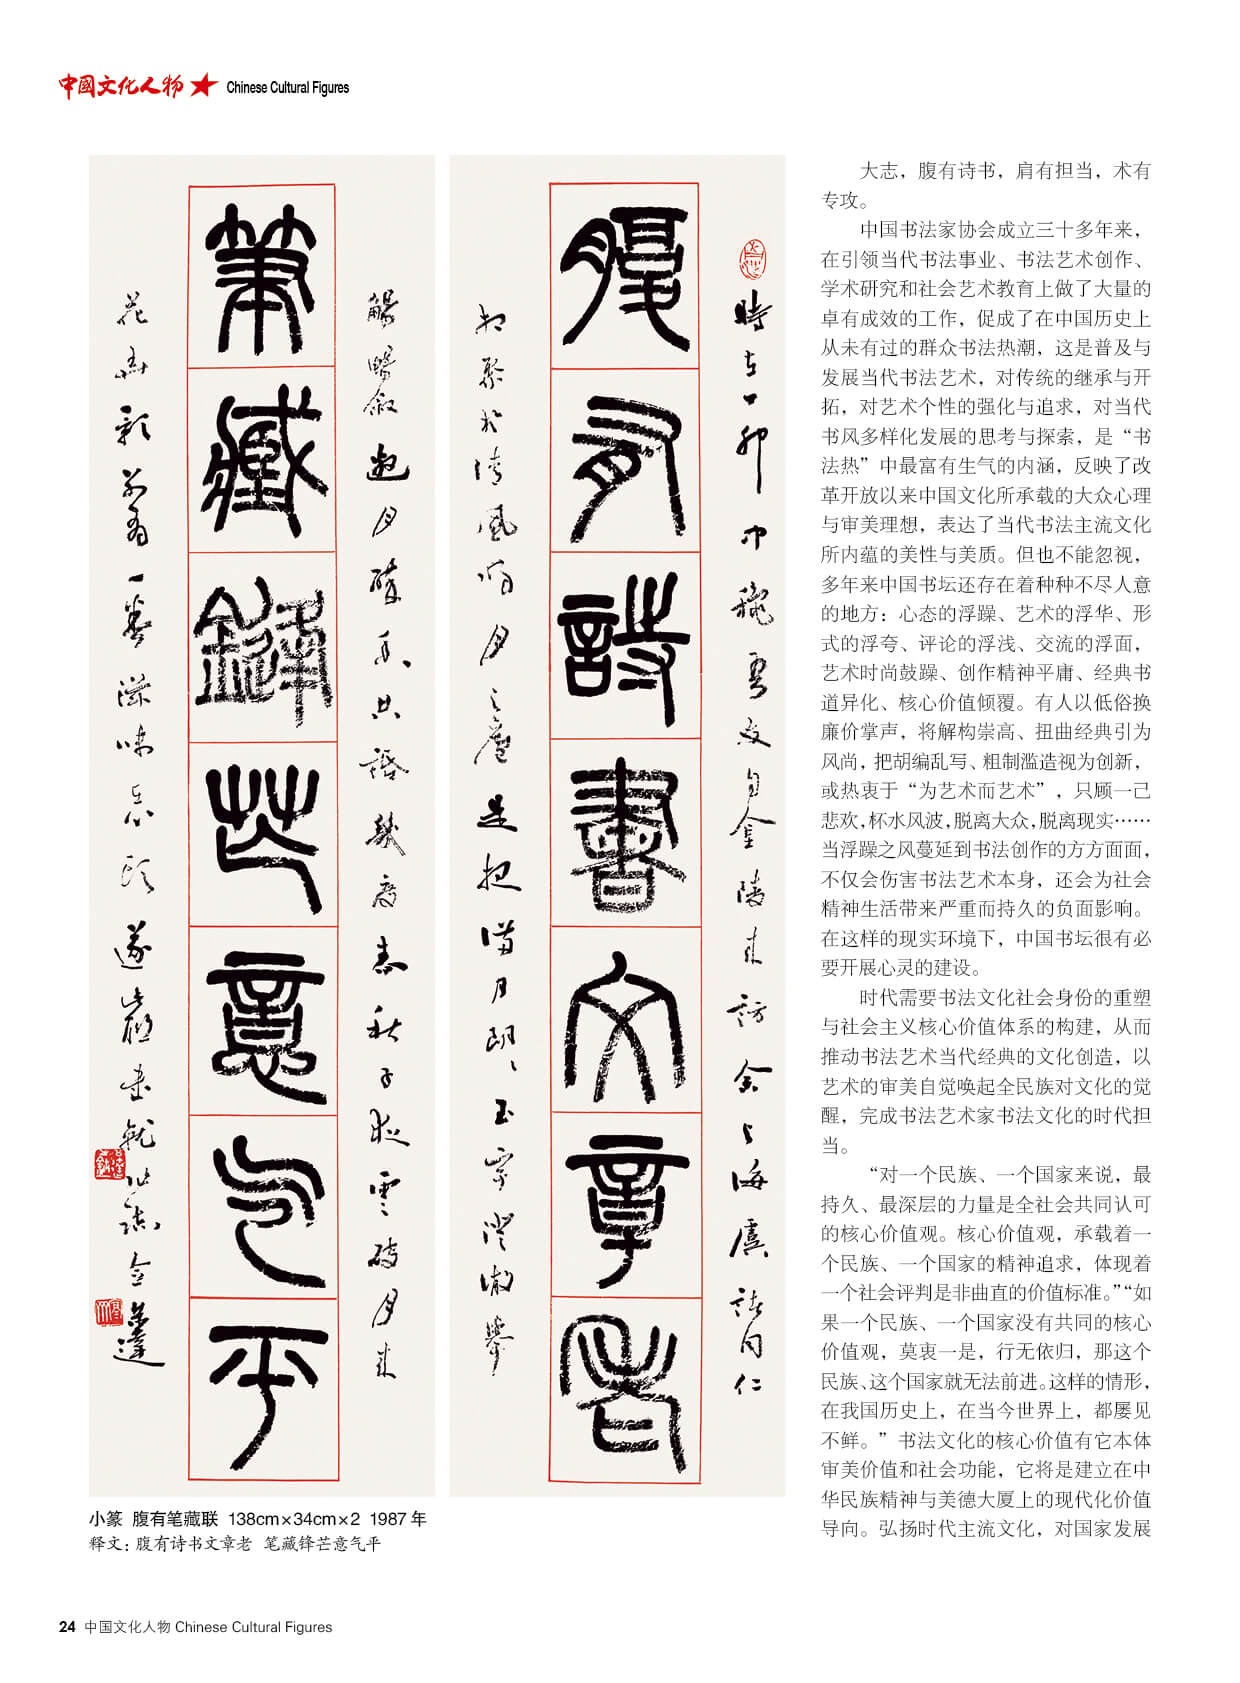 中國文化人物 Chinese Cultural Figures
時在丁卯中穐吾友自金陵来訪余与海虞諸同仁
腹有詩書文章老
相聚於清風明月之廬是夜月朗玉宇澄澈舉
觴暢敘
筆藏鋒芒意气平
小篆 腹有笔藏联 138cm×34cm×2 1987年
释文：腹有诗书文章老 笔藏锋芒意气平
大志，腹有诗书，肩有担当，术有
专攻。
中国书法家协会成立三十多年来，
在引领当代书法事业、书法艺术创作、
学术研究和社会艺术教育上做了大量的
卓有成效的工作，促成了在中国历史上
从未有过的群众书法热潮，这是普及与
发展当代书法艺术，对传统的继承与开
拓，对艺术个性的强化与追求，对当代
书风多样化发展的思考与探索，是“书
法热”中最富有生气的内涵，反映了改
革开放以来中国文化所承载的大众心理
与审美理想，表达了当代书法主流文化
所内蕴的美性与美质。但也不能忽视，
多年来中国书坛还存在着种种不尽人意
的地方：心态的浮躁、艺术的浮华、形
式的浮夸、评论的浮浅、交流的浮面，
艺术时尚鼓躁、创作精神平庸、经典书
道异化、核心价值倾覆。有人以低俗换
廉价掌声，将解构崇高、扭曲经典引为
风尚，把胡编乱写、粗制滥造视为创新，
或热衷于“为艺术而艺术”，只顾一己
悲欢，杯水风波，脱离大众，脱离现实……
当浮躁之风蔓延到书法创作的方方面面，
不仅会伤害书法艺术本身，还会为社会
精神生活带来严重而持久的负面影响。
在这样的现实环境下，中国书坛很有必
要开展心灵的建设。
时代需要书法文化社会身份的重塑
与社会主义核心价值体系的构建，从而
推动书法艺术当代经典的文化创造，以
艺术的审美自觉唤起全民族对文化的觉
醒，完成书法艺术家书法文化的时代担
当。
“对一个民族、一个国家来说，最
持久、最深层的力量是全社会共同认可
的核心价值观。核心价值观，承载着一
个民族、一个国家的精神追求，体现着
一个社会评判是非曲直的价值标准。”“如
果一个民族、一个国家没有共同的核心
价值观，莫衷一是，行无依归，那这个
民族、这个国家就无法前进。这样的情形，
在我国历史上，在当今世界上，都屡见
不鲜。”书法文化的核心价值有它本体
审美价值和社会功能，它将是建立在中
华民族精神与美德大厦上的现代化价值
导向。弘扬时代主流文化，对国家发展
24 中国文化人物 Chinese Cultural Figures